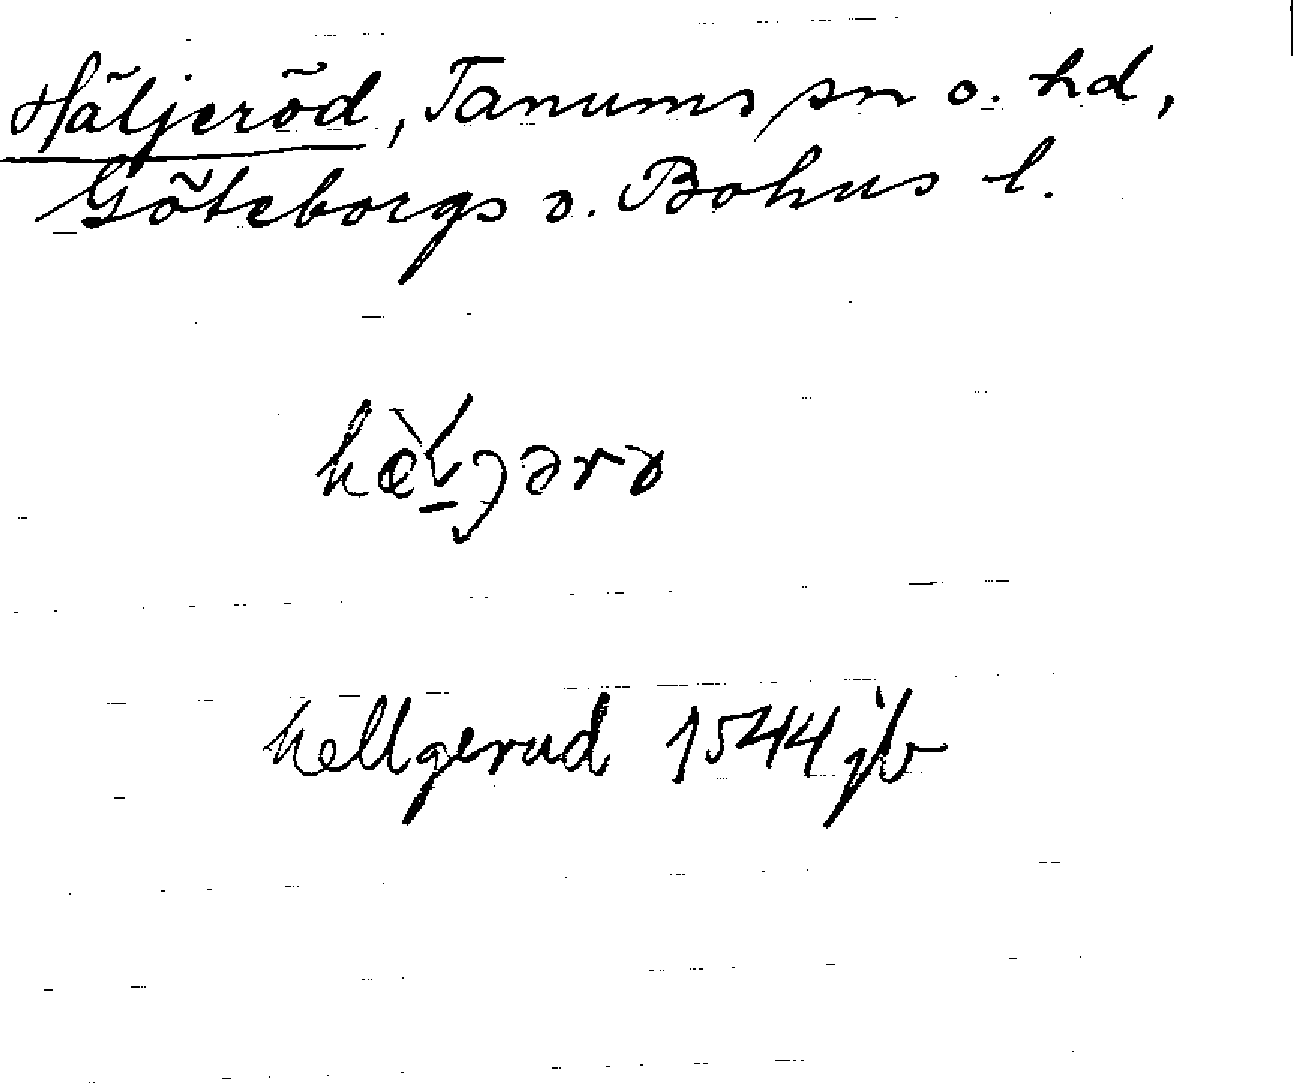 Häljeröd, Tanums sn o. hd,
Göteborgs o. Bohus l.
hellgerud 1544 jb